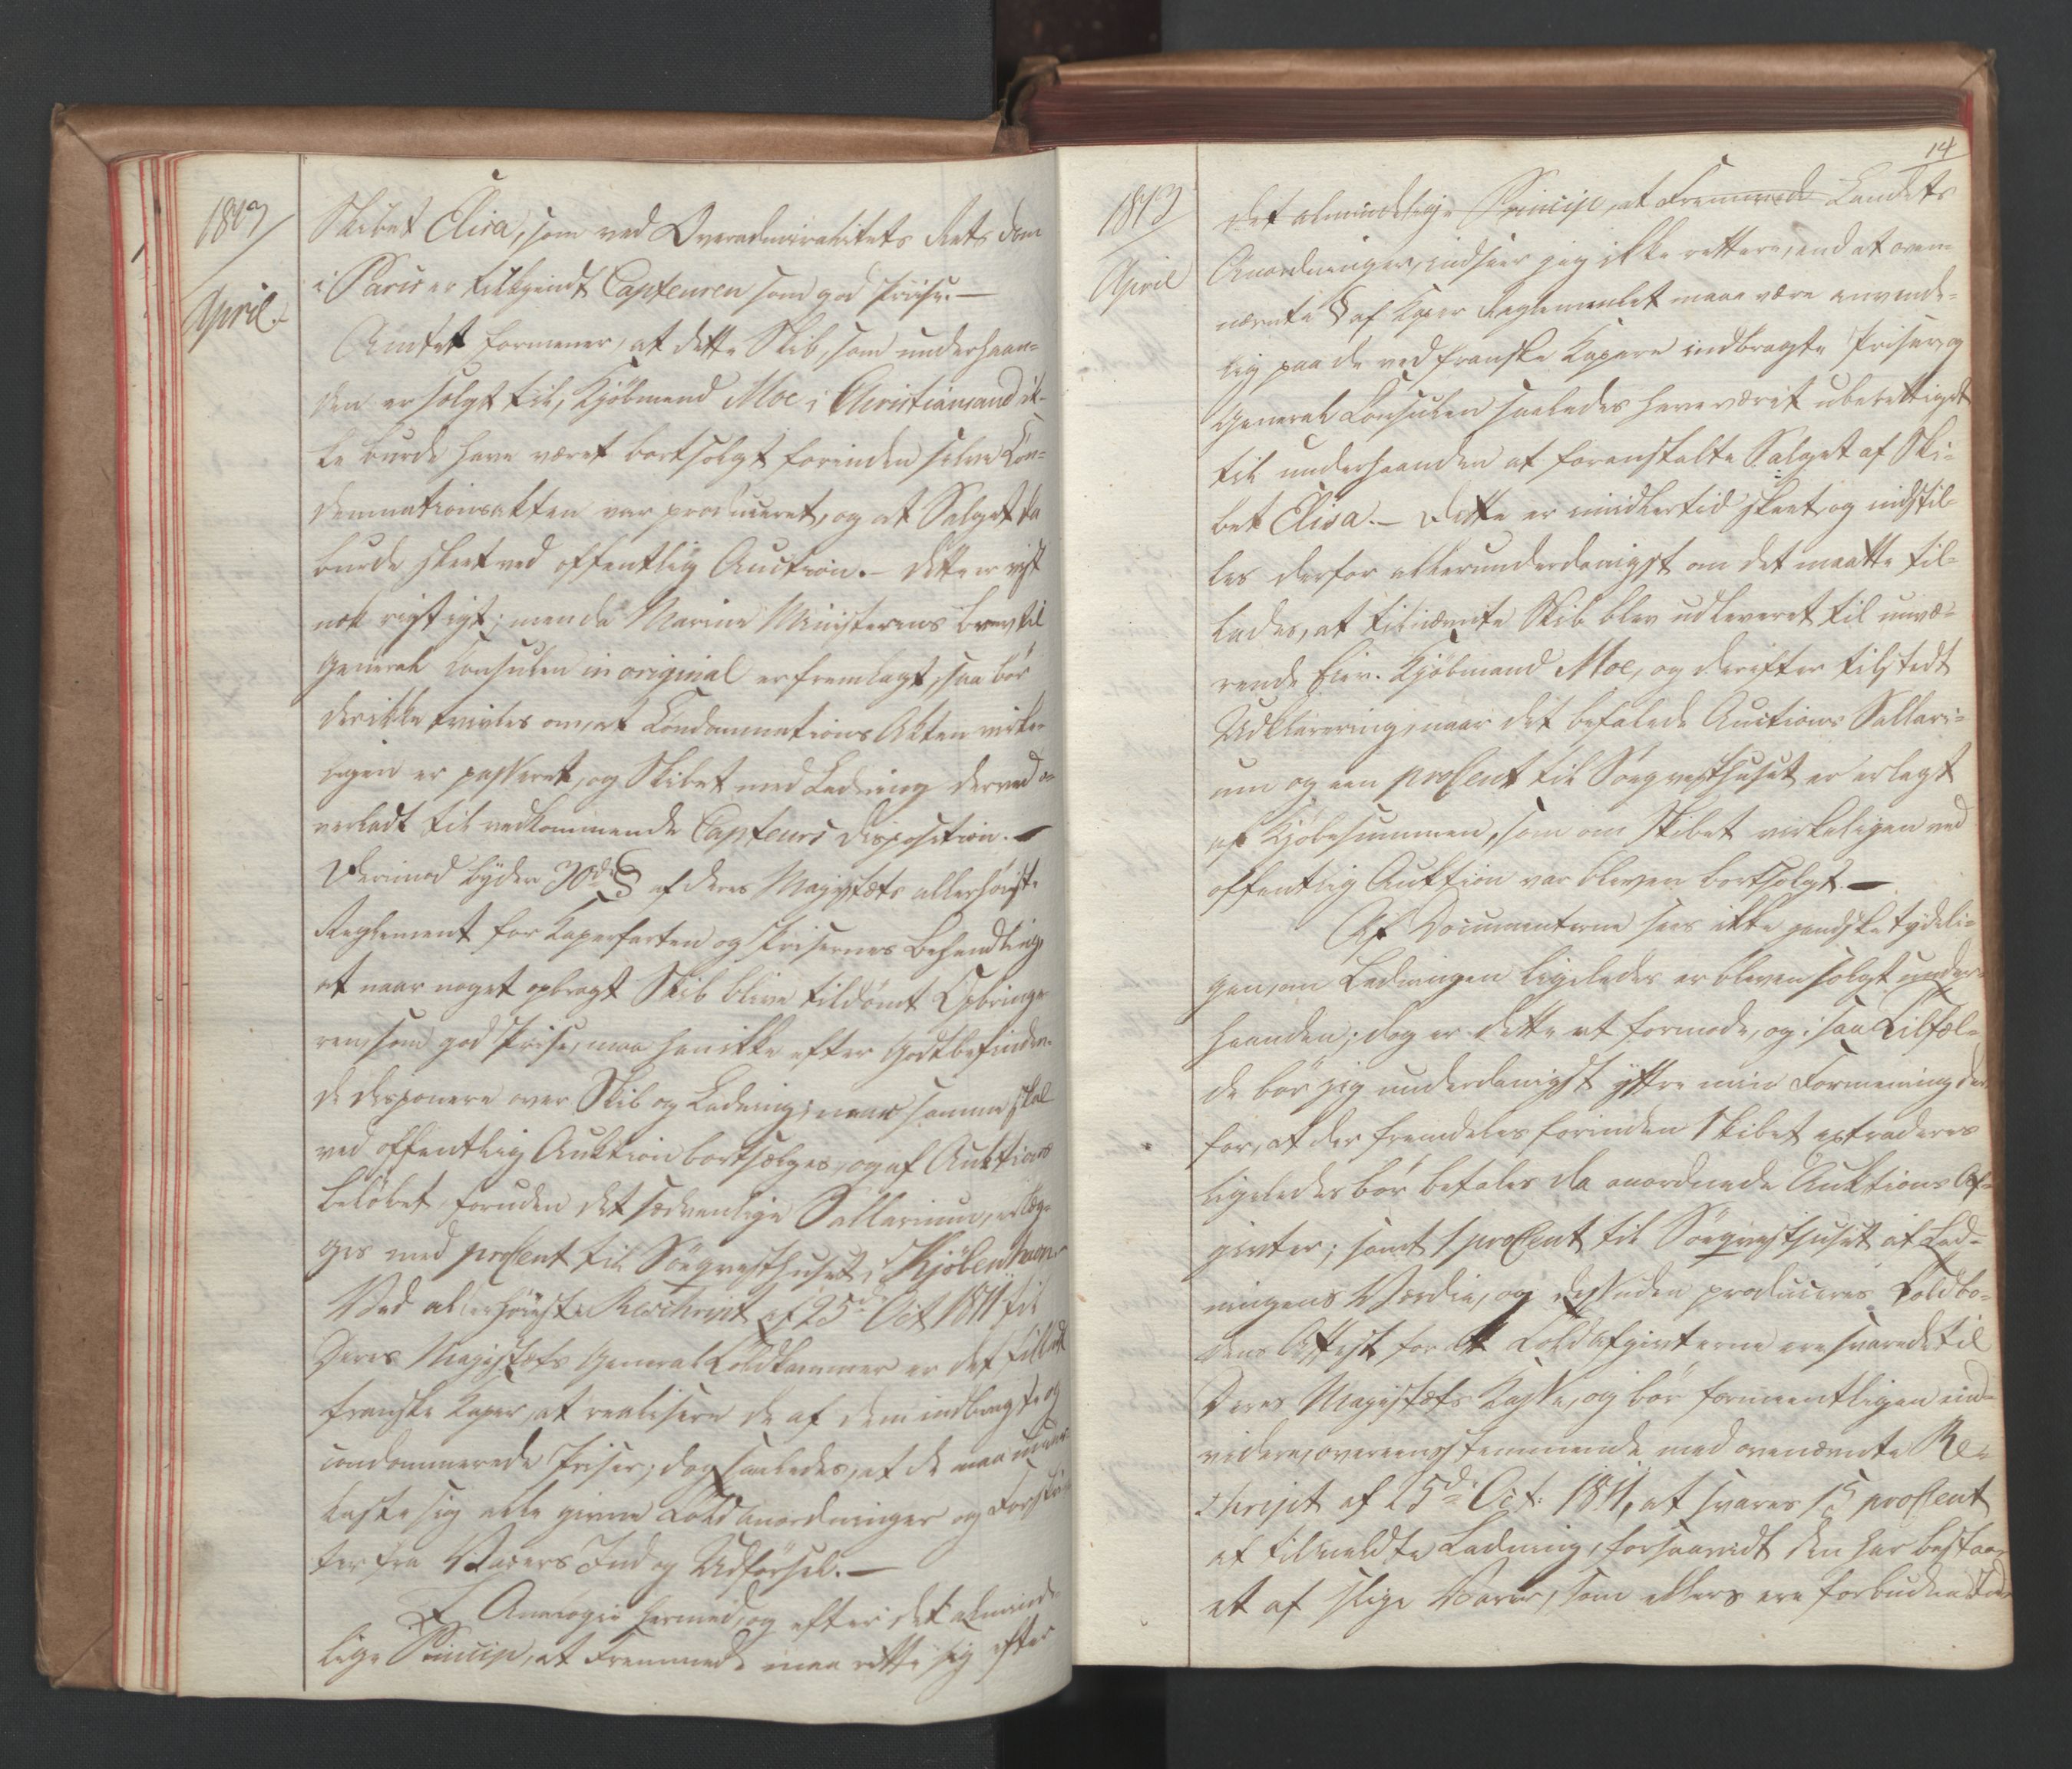 1813
April.
Skibet Elisa, som ved Overadmiralitets Rets Dom
i Paris er tilkjendt Capteuren som god Priise. —
Amtet formener, at dette Skib, som underhaan-
den er solgt til Kjøbmand Moe i Christiansand ik-
ke burde have været bortsolgt forinden selve Con-
demnationsakten var produceret, og at Salget da
burde skeet ved offentlig Auction. — Dette er vist
nok rigtigt; men da Marine Ministerens Brev til
General Consulen in original er fremlagt, saa bør
der ikke tvivles om, at Condamnations Akten virke-
ligen er passeret, og Skibet med Ladning derved o-
verladt til vedkommende Capteurs Disposition. —
Derimod byder 30de § af Deres Majestæts allerhøist
Reglement for Kaperfarten og Prisernes Behandling,
at naar noget opbragt Skib blive tildømt Opbringe-
ren, som god Prise, maa han ikke efter Godtbefinden-
de disponere over Skib og Ladning; men samme skal
ved offentlig Auktion bortsælges, og af Auktions
Beløbet, foruden det sædvanlige Sallarium, erlæg-
ges med proCent til Søeqvæsthuset i Kjøbenhavn.
Ved allerhøieste Rescript af 25de Oct 1811 til
Deres Majestæts General Toldkammer er det tilladt
franske Kaper, at realisere de af dem indbragte og
condamnerede Priser; dog saaledes, at de maa under-
kaste sig alle givne Toldanordninger og Forskrif-
ter fra Varers Ind og Udførsel. —
I Analogie hermed, og efter det almind-
lige Princip, at Fremmede maa rette sig efter
14
1813
April
det almindelige Princip, at Fremmede Landets
Anordninger, indseer jeg ikke rettere, end at oven-
nævnte § af Kaper Reglementet maae være anvende-
lig paa de ved franske Kapere indbragte Priser, og
General Consulen saaledes have været uberettiget
til underhaanden at foranstalte Salget af Ski-
bet Elisa. — Dette er imidlertid skeet, og indstil-
les derfor allerunderdanigst om det maatte til-
lades, at tilnævnte Skib blev udleveret til nuvæ-
rende Eier. Kjøbmand Moe, og derefter tilstedt
Udklarering, naar det befalede Auctions Sallari-
um og een proCent til Søeqvæsthuset er erlagt
af Kjøbesummen, som om Skibet virkeligen ved
offentlig Auktion var bleven bortsolgt. —
Af Documenterne sees ikke gandske tydeli-
gen, om Ladningen ligeledes er bleven solgt under-
haanden; dog er dette at formode, og i saa Tilfæl-
de bør jeg underdanigst yttre min Formening der-
for, at der fremdeles forinden Skibet extraderes
ligeledes bør betales de anordnede Auktions Af-
givter; samt 1 proCent til Søeqvæsthuset af Lad-
ningens Værdie, og desuden produceres Toldbo-
dens Attest for at Toldafgivterne ere svarede til
Deres Majestæts Kasse, og bør formeentligen end-
videre, overeensstemmende med ovennævnte Re-
skript af 25de Oct: 1811, at svares 15 proCent
af tilmeldte Ladning, forsaavidt den har bestaa-
et af slige Varer, som ellers ere forbudne